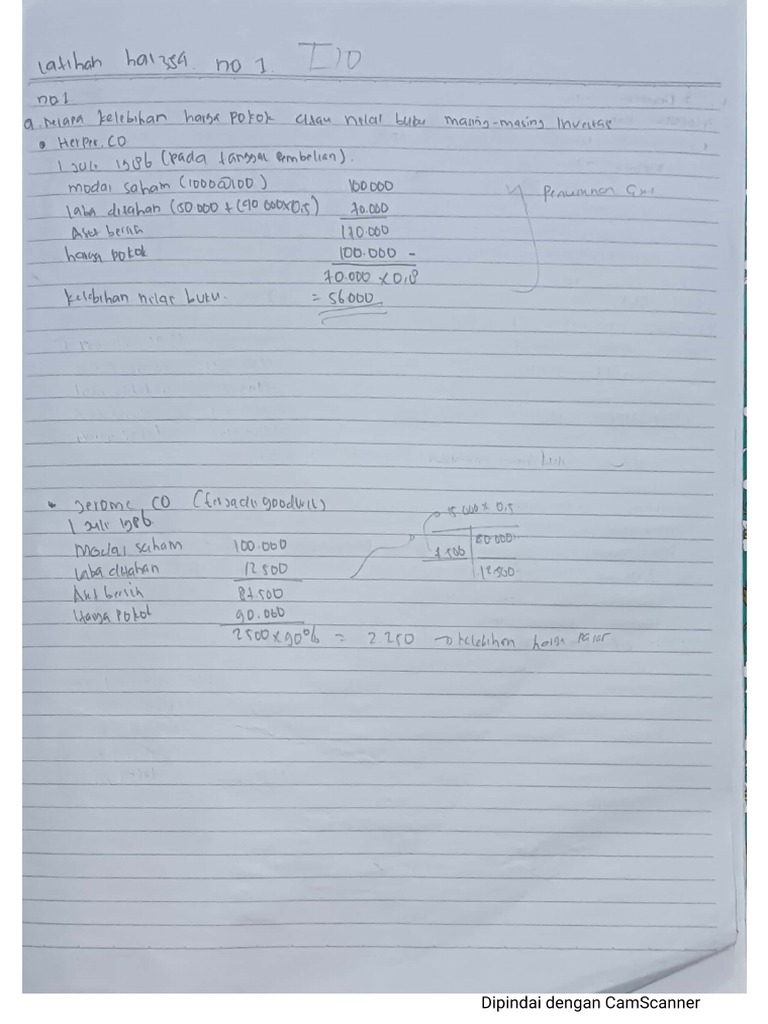 Latihan hal 354. no 1.
no 1
a. kelebihan harga pokok atau nilai buku masing-masing investasi
• Herper. CO
1 Juli 1986 (pada tanggal embelian).
modal saham (1000@100) 100 000
laba ditahan (50 000 + (40 000x0,5) 70.000
Aset bersih 170.000
harga pokok 100.000 -
70.000 x 0,8
kelebihan nilai buku. = 56000
• Jerome CO (terjadi goodwill)
1 Juli 1986
Modal saham 100.000
laba ditahan 12 500
Aset bersih 87.500
Harga pokok 90.000
2500 x 90% = 2.250 → kelebihan harga pasar
15 000 x 0,5
7 500
12 500
Dipindai dengan CamScanner